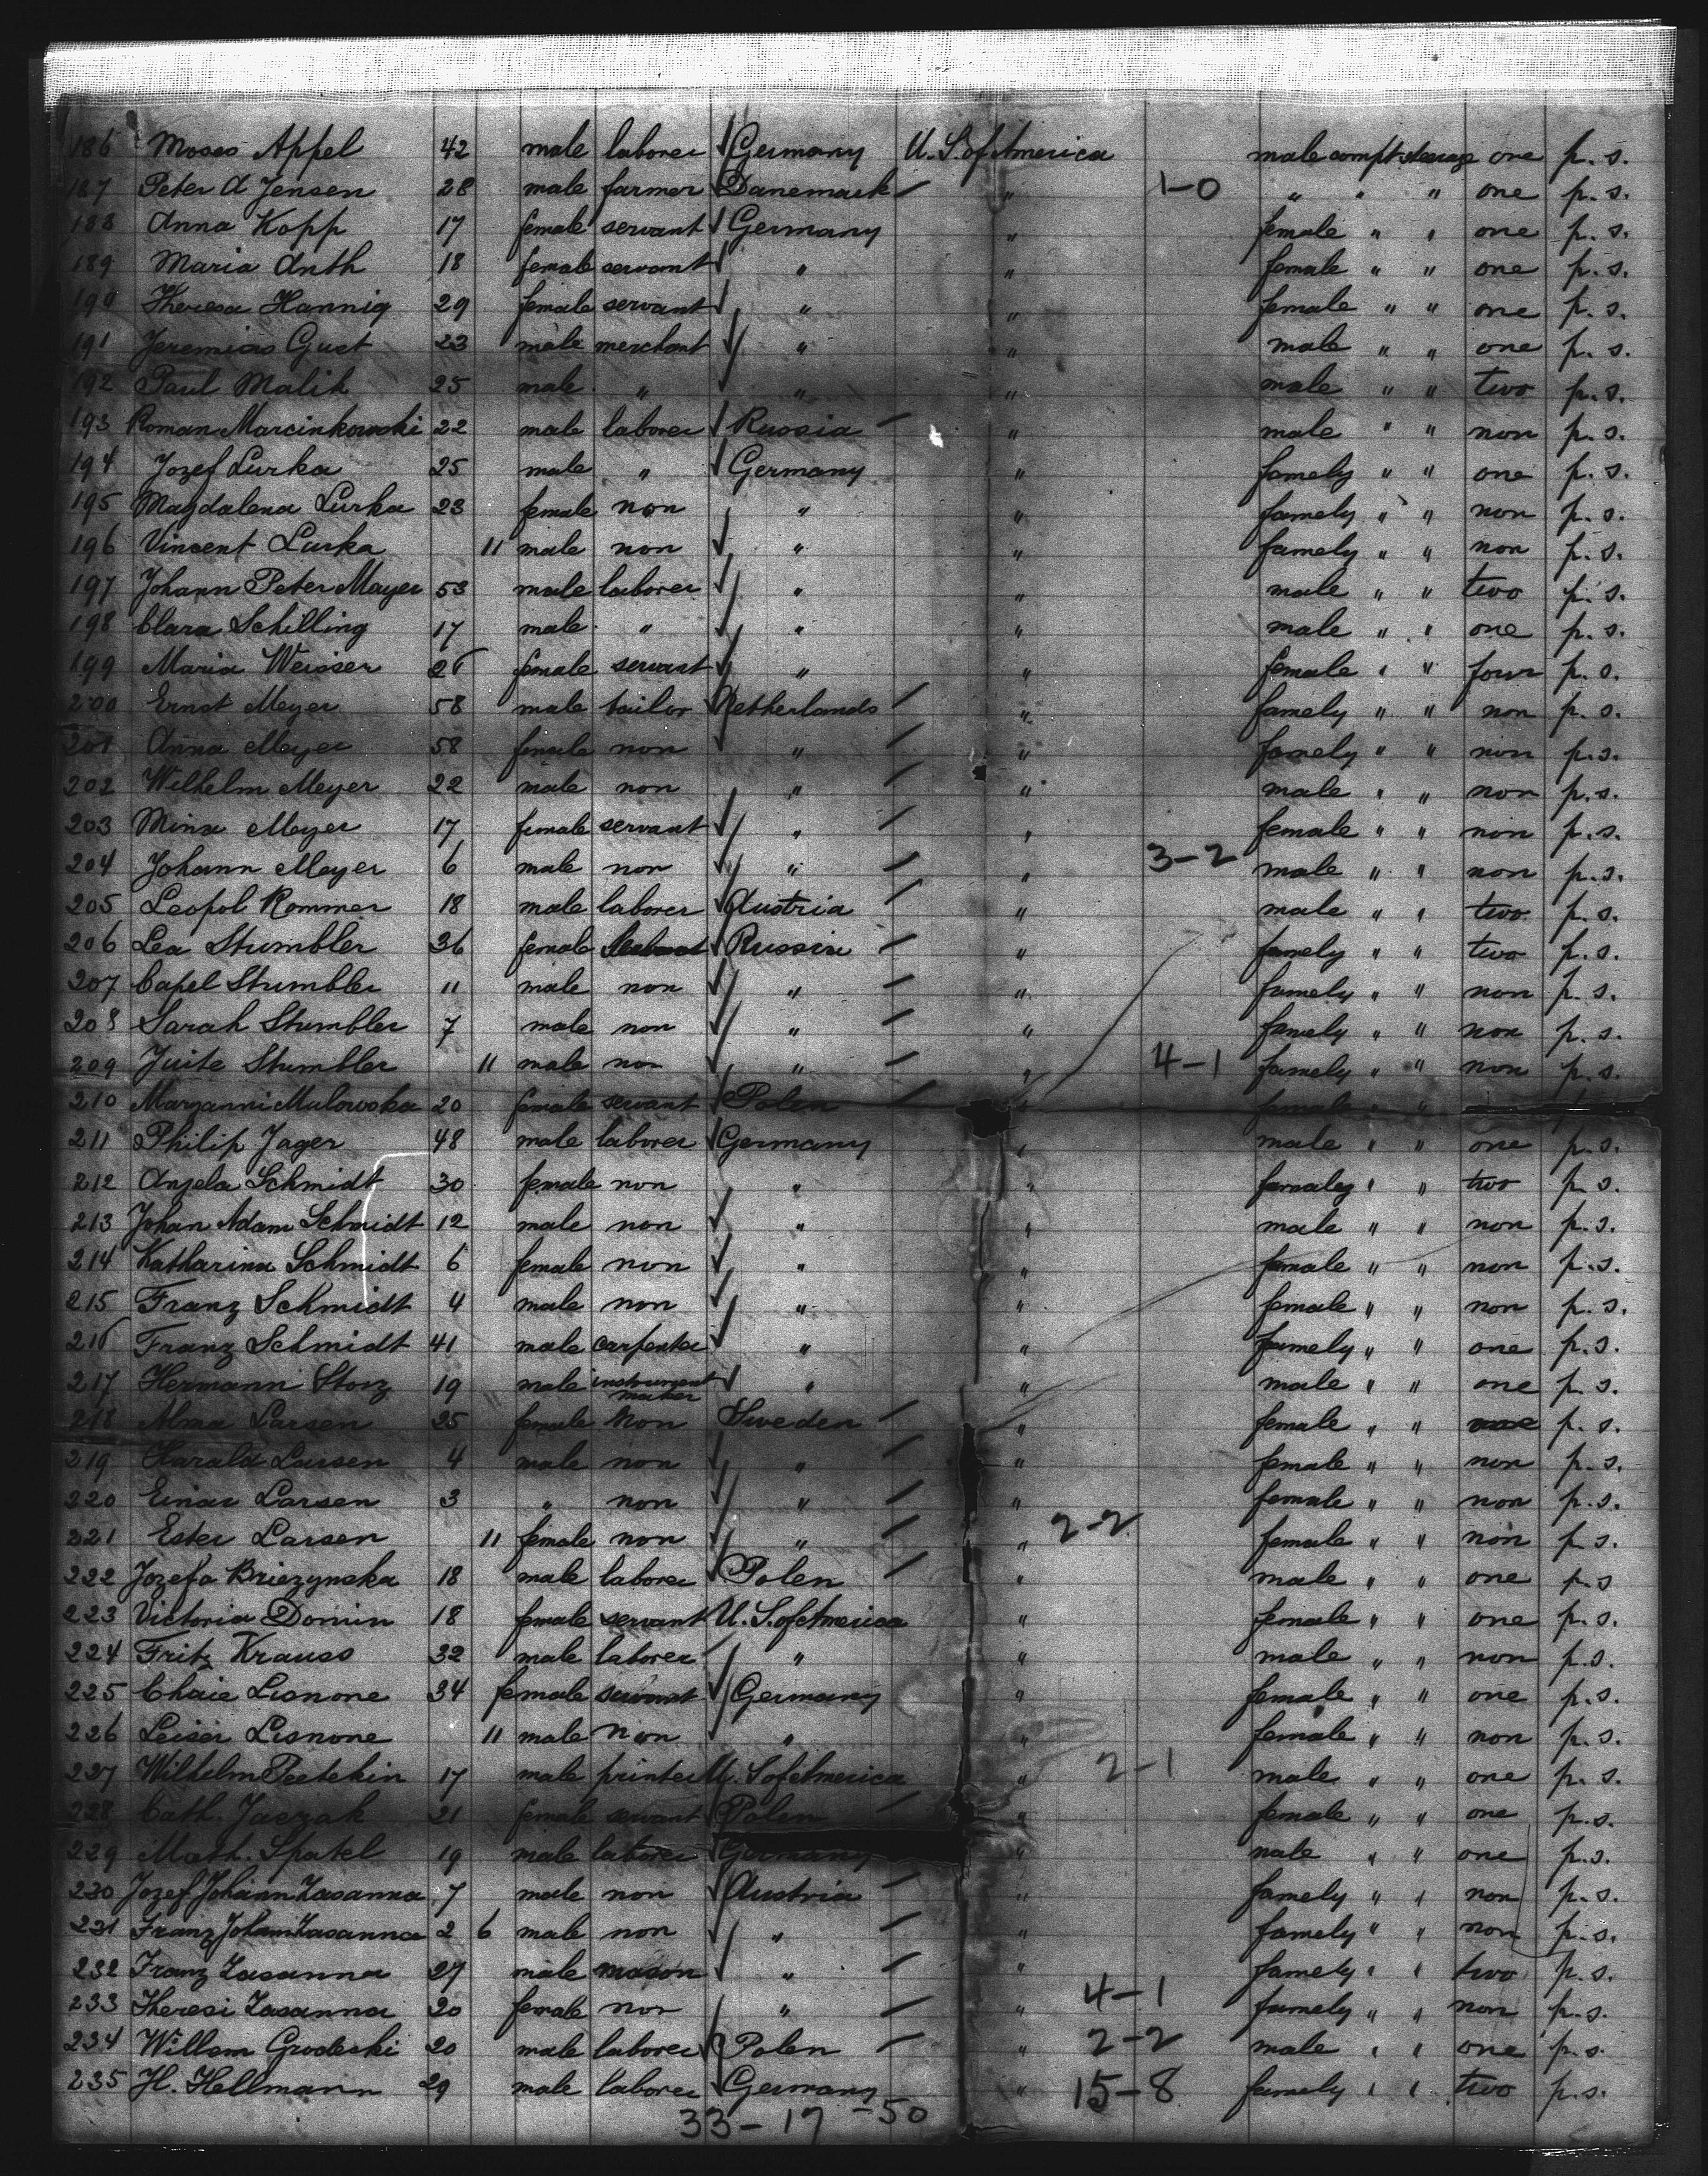 186 Moses Appel 42 male laborer Germany U. S. of America male compt steerage one p. s.
187 Peter A Jensen 28 male farmer Danemark " 1-0 " " " one p. s.
188 Anna Kopp 17 female servant Germany " female " " one p. s.
189 Maria Anth 18 female servant " " female " " one p. s.
190 Theresa Hannig 29 female servant " " female " " one p. s.
191 Jeremias Gust 23 male merchant " " male " " one p. s.
192 Paul Malik 25 male " " " male " " two p. s.
193 Roman Marcinkowski 22 male laborer Russia " male " " non p. s.
194 Jozef Lurka 25 male " Germany " famely " " one p. s.
195 Magdalena Lurka 23 female non " " famely " " non p. s.
196 Vincent Lurka 11 male non " " famely " " non p. s.
197 Johann Peter Mayer 53 male laborer " " male " " two p. s.
198 Clara Schilling 17 male " " " male " " one p. s.
199 Maria Weisser 26 female servant " " female " " four p. s.
200 Ernst Meyer 58 male tailor Netherlands " famely " " non p. s.
201 Anna Meyer 58 female non " " famely " " non p. s.
202 Wilhelm Meyer 22 male non " " male " " non p. s.
203 Mina Meyer 17 female servant " " female " " non p. s.
204 Johann Meyer 6 male non " " 3-2 male " " non p. s.
205 Leopol Rommer 18 male laborer Austria " male " " two p. s.
206 Lea Stumbler 36 female Russia " famely " " two p. s.
207 Capel Stumbler 11 male non " " famely " " non p. s.
208 Sarah Stumbler 7 male non " " famely " " non p. s.
209 Juite Stumbler 11 male non " " 4-1 famely " " non p. s.
210 Maryanni Mulowska 20 female servant Polen " female " "
211 Philip Jager 48 male laborer Germany " male " " one p. s.
212 Angela Schmidt 30 female non " " famaley " " two p. s.
213 Johan Adam Schmidt 12 male non " " male " " non p. s.
214 Katharina Schmidt 6 female non " " female " " non p. s.
215 Franz Schmidt 4 male non " " female " " non p. s.
216 Franz Schmidt 41 male carpenter " " famely " " one p. s.
217 Hermann Storz 19 male instrument maker " " male " " one p. s.
218 Alma Larsen 25 female non Sweden " female " " p. s.
219 Harald Larsen 4 male non " " female " " non p. s.
220 Einar Larsen 3 " non " " female " " non p. s.
221 Ester Larsen 11 female non " " 2-2 female " " non p. s.
222 Jozefa Briezynska 18 male laborer Polen " male " " one p. s
223 Victoria Domin 18 female servant U. S. of America " female " " one p. s.
224 Fritz Krauss 32 male laborer " " male " " non p. s.
225 Chaie Lisnone 34 female servant Germany " female " " one p. s.
226 Leiser Lisnone 11 male non " " female " " non p. s.
227 Wilhelm Peetekin 17 male printer U. S of America " 2-1 male " " one p. s.
228 Cath. Jaszak 21 female servant Polen female " " one p. s.
229 Math. Spatel 19 male laborer Germany " male " " one p. s.
230 Jozef Johann Zasanna 7 male non Austria " famely " " non p. s.
231 Franz Johann Zasanna 2 6 male non " " famely " " non p. s.
232 Franz Zasanna 27 male mason " " famely " " two p. s.
233 Theresi Zasanna 20 female non " " 4-1 famely " " non p. s.
234 Willem Grodeski 20 male laborer Polen " 2-2 male " " one p. s.
235 H. Hellmann 29 male laborer Germany " 15-8 famely " " two p. s.
33-17-50